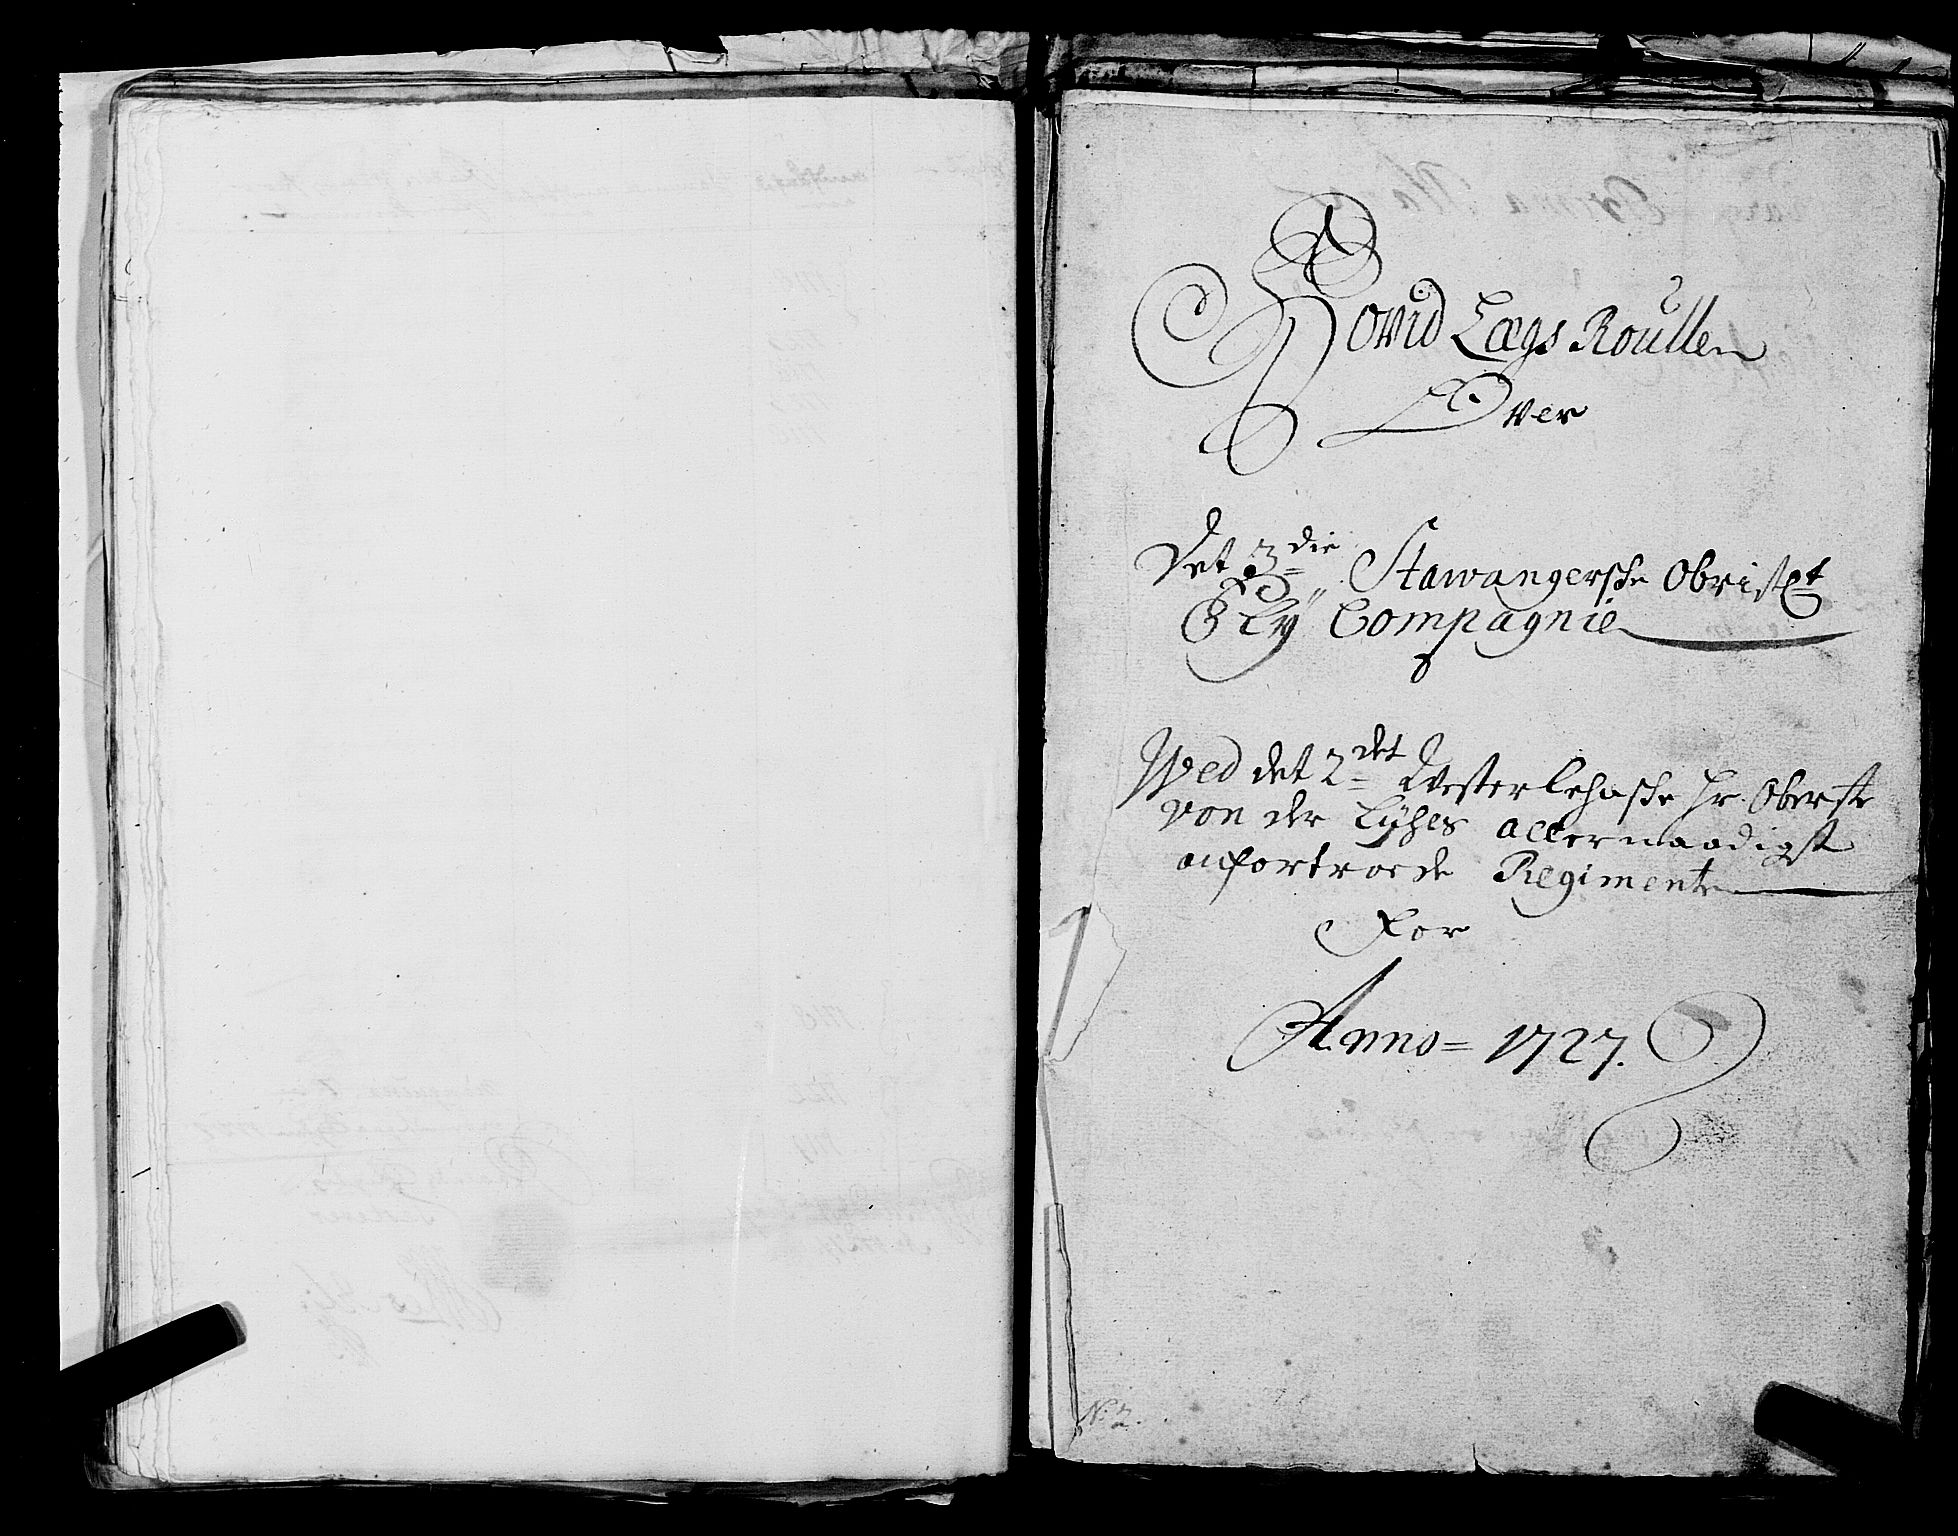 Hovid Lægs Roullen
Over
Det 3die Stawangerske Obrist Lt
Fly Compagnie
Wed det 2det Westerlehnske Hr. Oberste
von der Lÿhes allernaadigst
anfortroede Regimente
For
Anno = 1727.
N. 2.